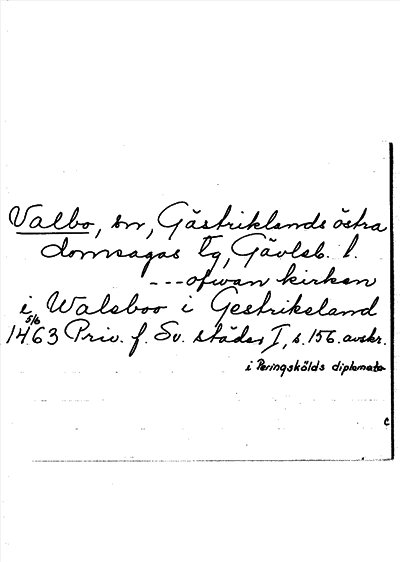 Valbo, sn, Gästriklands östra
domsagas tg, Gävleb. l.
---ofwan kirkan
i Walsboo i Gestrikeland
5/6
1463 Priv. f. Sv. städer I, s. 156. avskr.
i Peringskölds diplomata
c